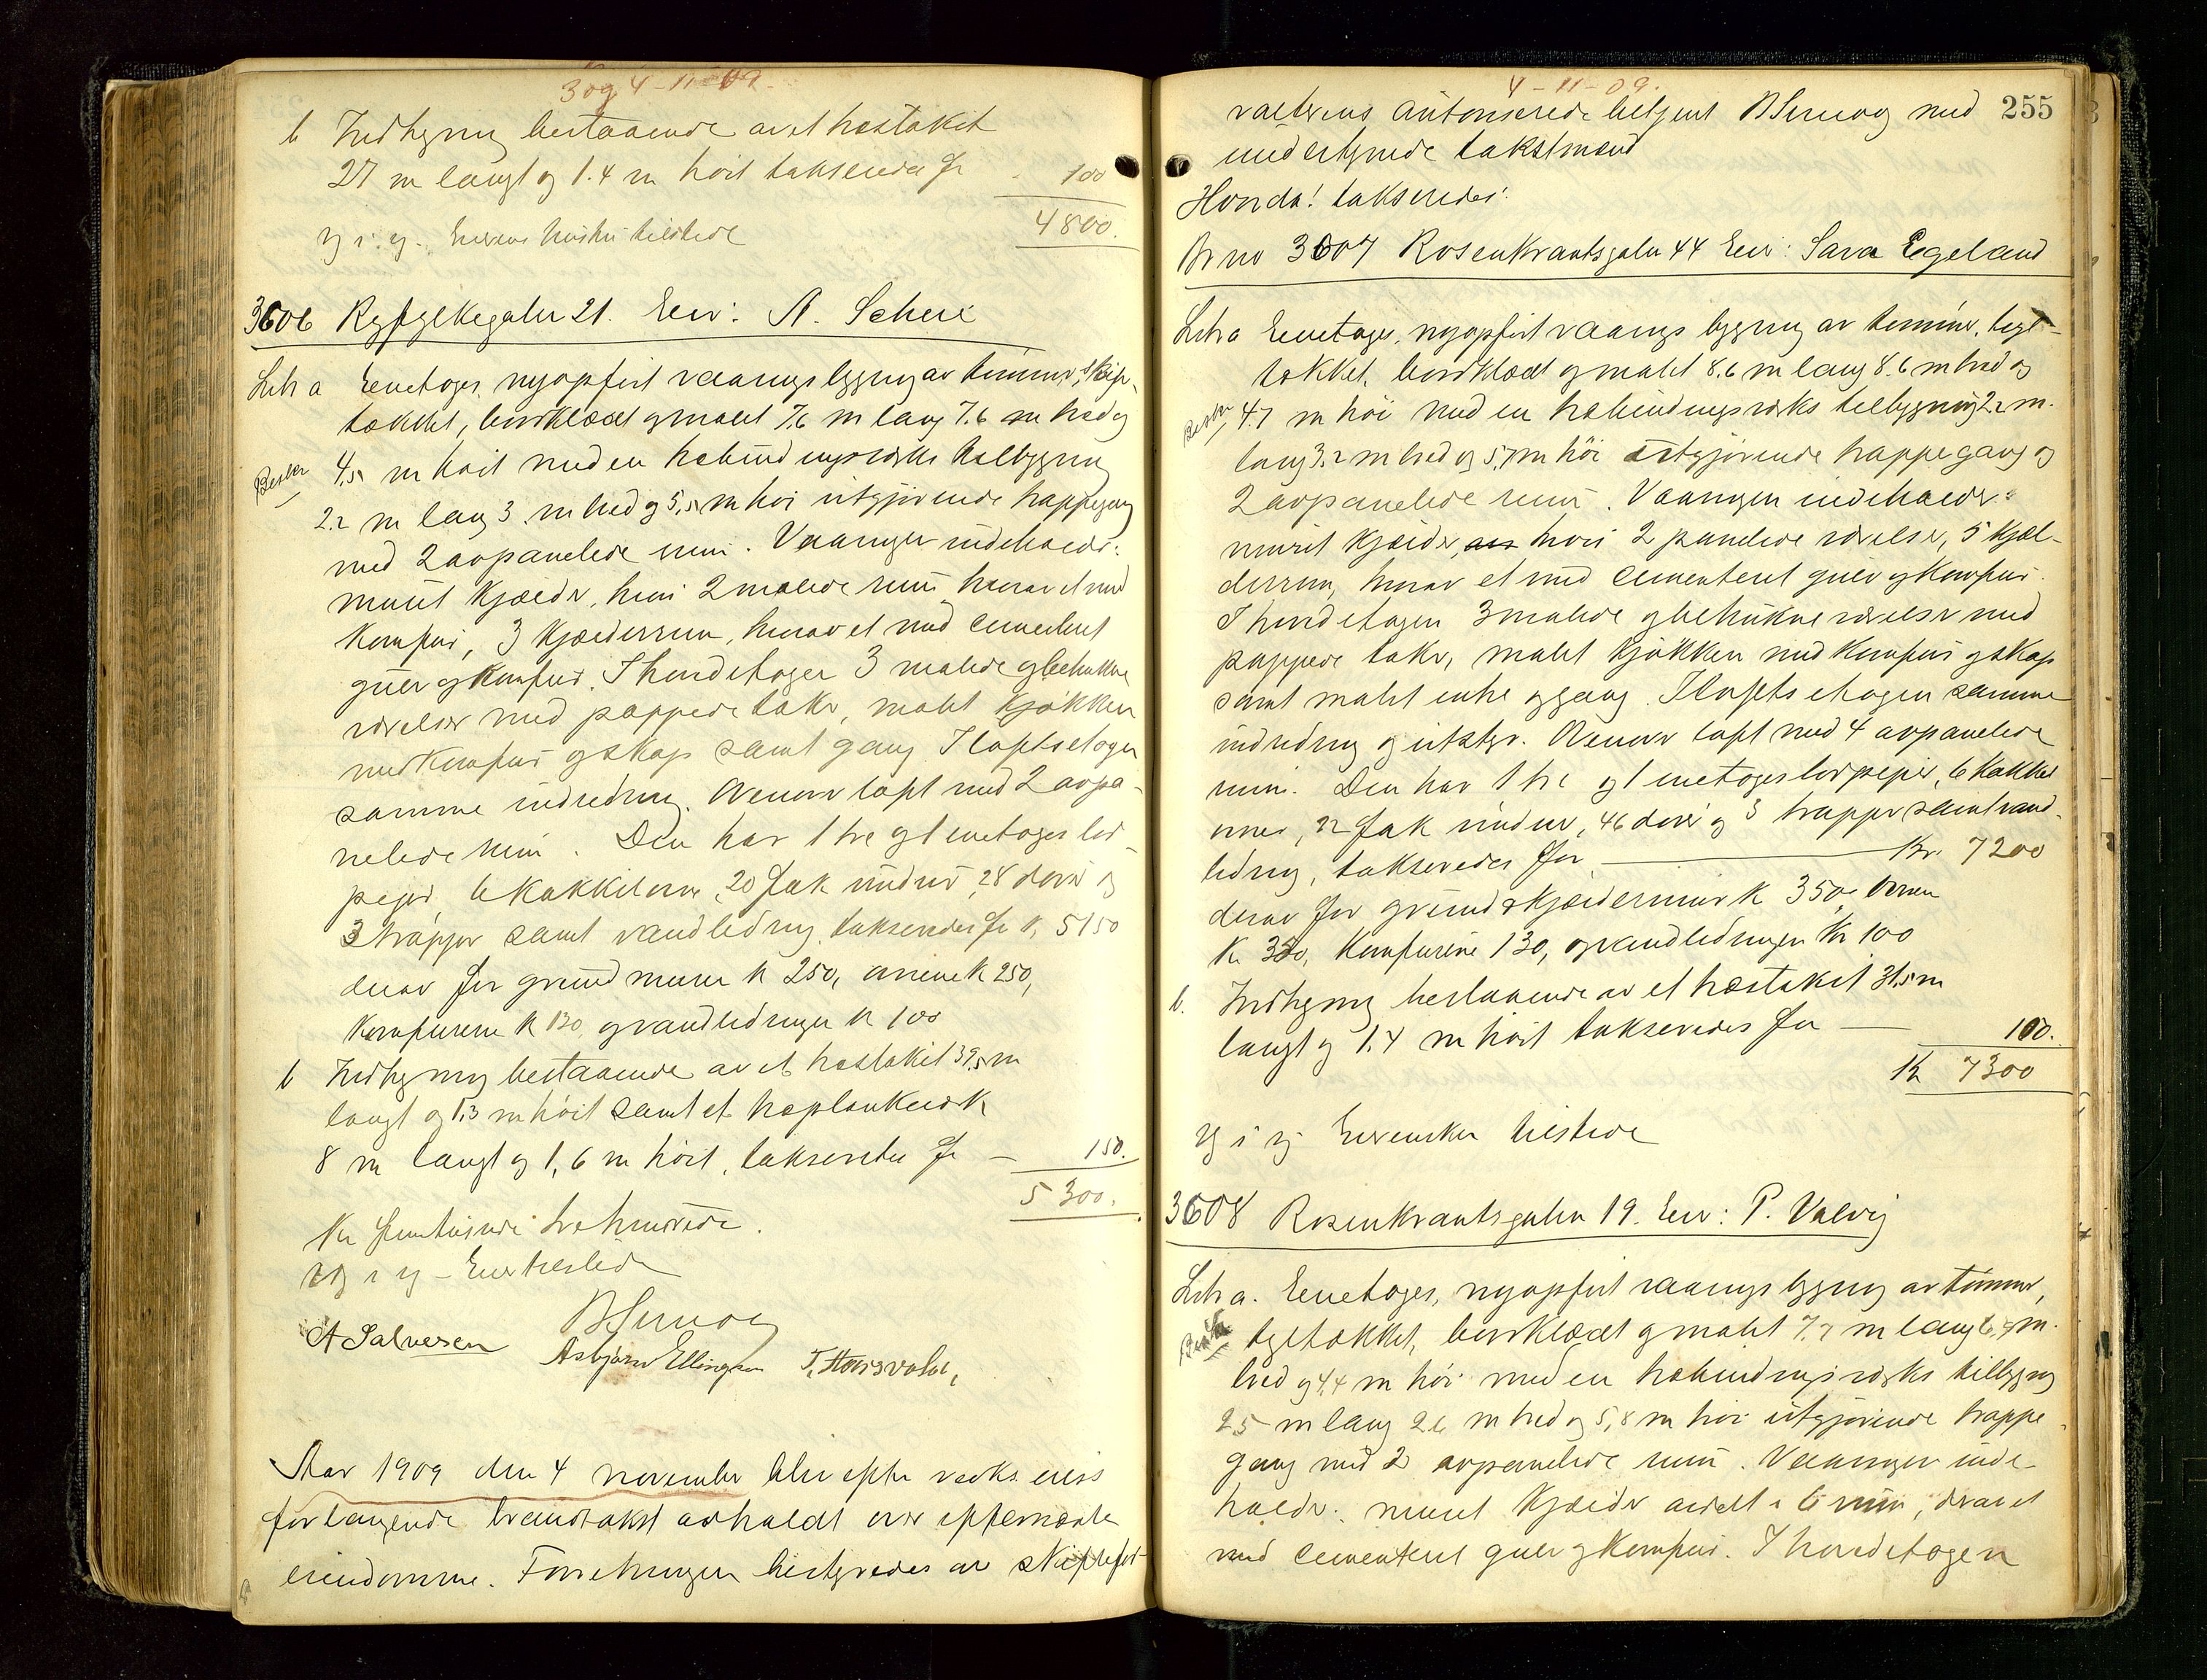 3 og 4-11-09.
b Indhegning bestaaende av et hestakit
27 m langt og 1.4 m høit takseredes for - 100
4800.
Eierens hustru tilstede
3606 Ryfylkegaten 21. Eier: A. Scheie
Litr a Eenetages, nyopført vaaningsbygning av tømmer, skifer-
tækket, bordklædt og malet 7.6 m lang 7.6 m bred og
4,5 m høit med en halvbindingsverks tilbygning
2.2 m lang 3 m bred og 5,5 m høi utgjørende trappegang
med 2 avpanelede rum. Vaaningen indeholder:
muret kjælder, hvori 2 malede rum hvorav et med
komfur, 3 kjælderrum, hvorav et med cementeret
gulv og komfur. I første etage 3 malede og betrukne
værelser med pappede taker, malet kjøkken
med komfur og skap samt gang. I loftsetagen
samme indredning. Ovenover loft med 2 avpa-
nelede rum. Den har 1 tre og 1 enetages lod-
peper 6 kakkelovne, 20 fak vinduer, 28 dører og
3 trapper samt vandledning, takseredes for k. 5150
derav for grundmuren k 250, ovnene k 250,
komfurene k 130, og vandledningen k 100
b Indhegning bestaaende av et hestakit 39,5 m
langt og 1,3 m høit samt et treplankeverk
8 m langt og 1,6 m høit, takseredes for - 150.
5300.
Kr femtusinde trehundrede.
Eier tilstede
A Salvesen
Asbjørn Ellingsen T. Houssvold,
Aar 1909 den 4 november blev efter vedk. eiers
forlangende brandtakst avholdt over efternævnte
eiendomme. Forretningen bestyredes av skiftefor-
4-11-09.
255
valterens autoriserede betjent med
undertegnede takstmænd
Hvorda! takseredes:
Br no 3607 Rosenkrantsgaten 44 Eier: Sara Egeland
Litr a Eenetages, nyopført vaaningsbygning av tømmer, tegl-
tækket, bordklædt og malet 8.6 m lang 8.6 m bred og
4.7 m høi med en halvbindingsverks tilbygning 2.2 m.
lang 3.2 m bred og 5,7 m høi utgjørende trappegang og
2 avpanelede rum. Vaaningen indeholder:
muret kjælder, hvori 2 panelede værelser, 5 kjæl-
derrum, hvorav et med cementeret gulv og komfur.
I første etagen 3 malede og betrukne værelser med
pappede taker, malet kjøkken med komfur og skap
samt malet entre og gang. I loftsetagen samme
indredning og utstyr. Ovenover loft med 4 avpanelede
rum. Den har 1 tre og 1 enetages lodpeper, 6 kakkel-
ovner, 22 fak vinduer, 46 dører og 3 trapper samt vand-
ledning, takseredes for — Kr. 7200
derav for grund & kjældermur k 350, ovnen
k. 350, komfurene 130, og vandledningen Kr 100
b. Indhegning bestaaende av et hestakit 31,5 m
langt og 1.4 m høit takseredes for — 100.
Kr 7300
Eiersken tilstede
3608 Rosenkrantsgaten 19. Eier: P. Valvig
Litr a. Eenetages, nyopført vaaningsbygning av tømmer,
tegltækket, bordklædt og malet 7,7 m lang 6,9 m.
bred og 4,4 m høi med en halvbindingsverks tilbygning
2.5 m lang 2.6 m bred og 5,8 m høi utgjørende trappe-
gang med 2 avpanelede rum. Vaaningen inde-
holder: muret kjælder avdelt i 6 rum, derav et
med cementeret gulv og komfur. I første etagen